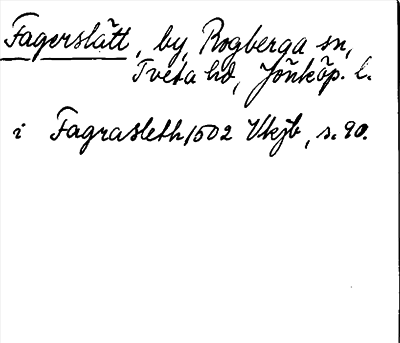 Fagerslätt, by, Rogberga sn,
Tveta hd, Jönköp. l.
i Fagrasleth 1502 Vkjb, s. 90.